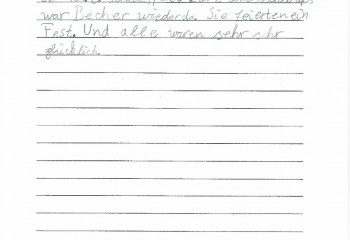 war Becher wieder da. Sie feierten ein
Fest. Und alle waren sehr sehr
glücklich.